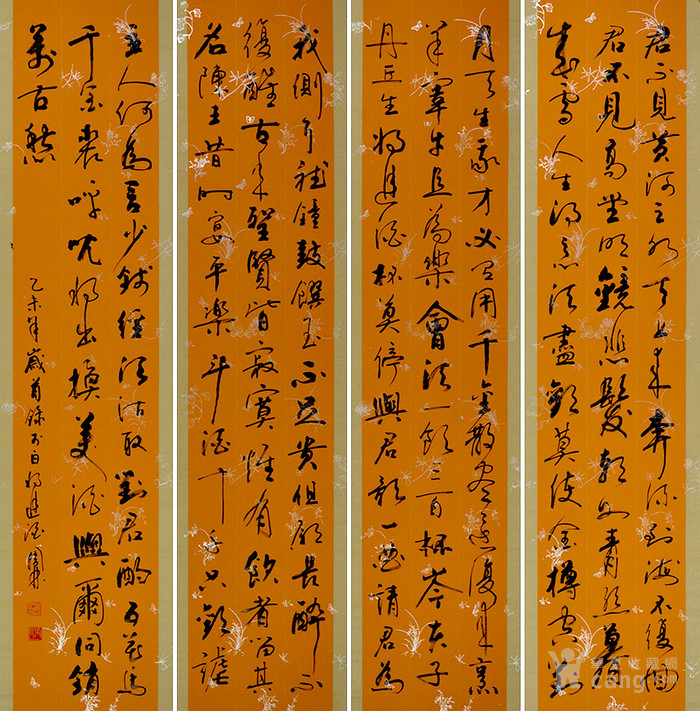 君不見黃河之水天上來奔流到海不復回
君不見高堂明鏡悲髮朝如青絲暮
成雪人生得意須盡歡莫使金樽空對
月天生我才必有用千金散盡還復來烹
羊宰牛且為樂會須一飲三百杯岑夫子
丹丘生將進酒杯莫停與君歌一曲請君為
我側耳聽鐘鼓饌玉不足貴但願長醉不
復醒古來聖賢皆寂寞惟有飲者留其
名陳王昔時宴平樂斗酒十千恣歡謔
主人何為言少錢徑須沽取對君酌五花馬
千金裘呼兒將出換美酒與爾同銷
萬古愁
乙未年歲首錄李白將進酒